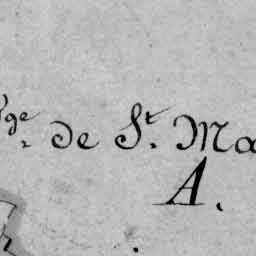 ge. de St. Ma
A.